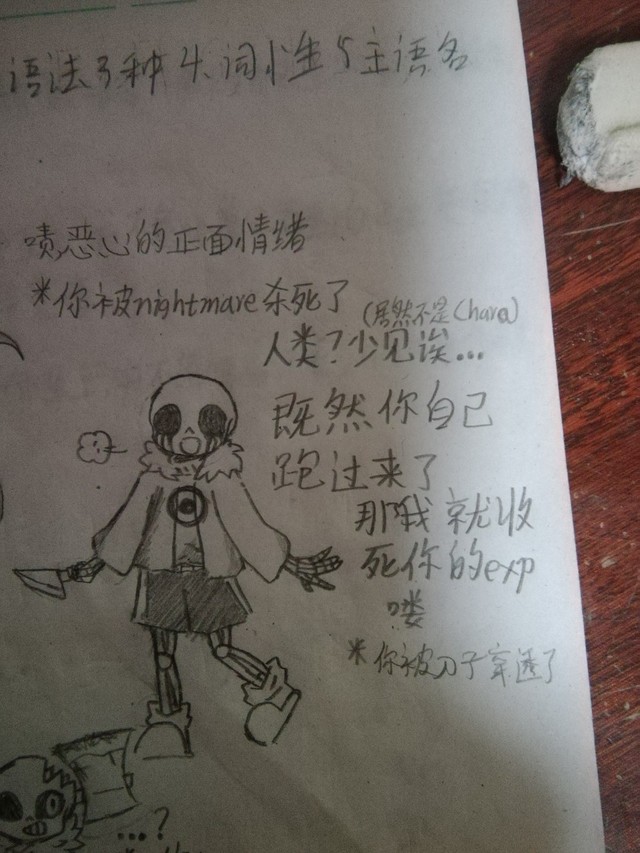 语法3种 4词性 5主语名
啧,恶心的正面情绪
*你被nightmare杀死了
(居然不是Chara)
人类?少见诶...
既然你自己
跑过来了
那我就收
死你的exp
喽
*你被刀子穿透了
...?